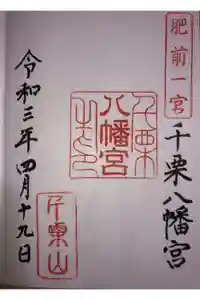 肥前一宮
千栗八幡宮
八幡宮
千栗山
令和三年四月十九日